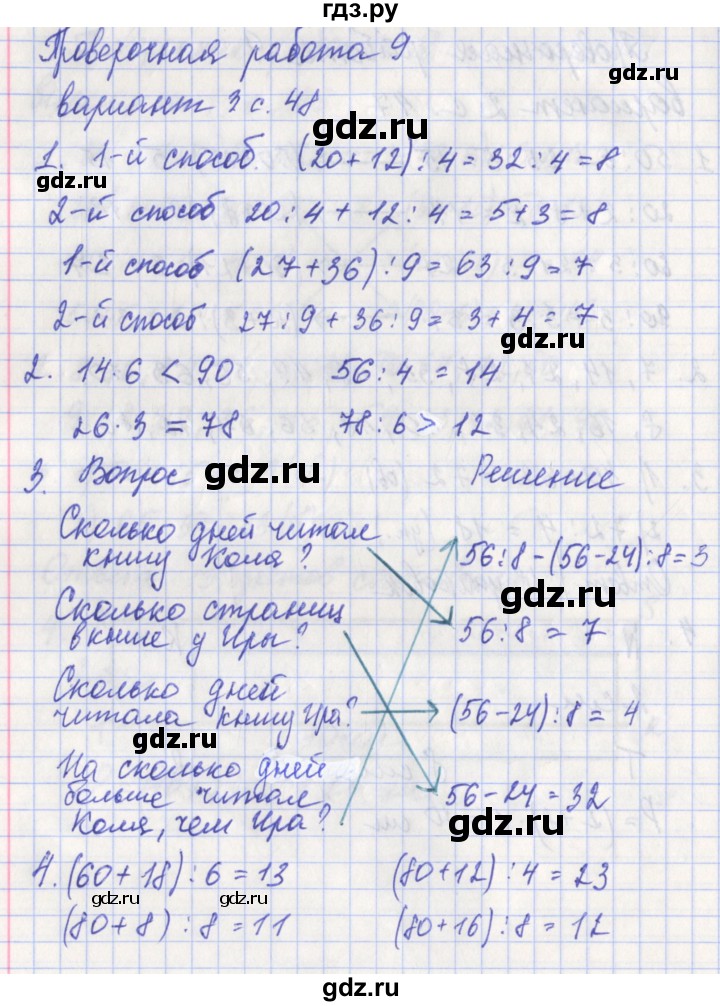 гдз.ру
Проверочная работа 9
gdz.ru
вариант 3 с. 48
gdz.ru
1. 1-й способ. (20+12):4=32:4=8
2-й способ 20:4+12:4=5+3=8
1-й способ (27+36):9=63:9=7
2-й способ 27:9+36:9=3+4=7
gdz.ru
2. 14·6<90 56:4=14
26·3=78 78:6>12
3. Вопрос Решение
gdz.ru
Сколько дней читал
книгу Коля? 56:8-(56-24):8=3
gdz.ru
Сколько страниц
в книге у Иры? 56:8=7
Сколько дней
читала книгу Ира? (56-24):8=4
gdz.ru
На сколько дней
больше читал 56-24=32
Коля, чем Ира?
gdz.ru
4. (60+18):6=13 (80+12):4=23
gdz.ru gdz.ru
(80+8):8=11 (80+16):8=12
gdz.ru